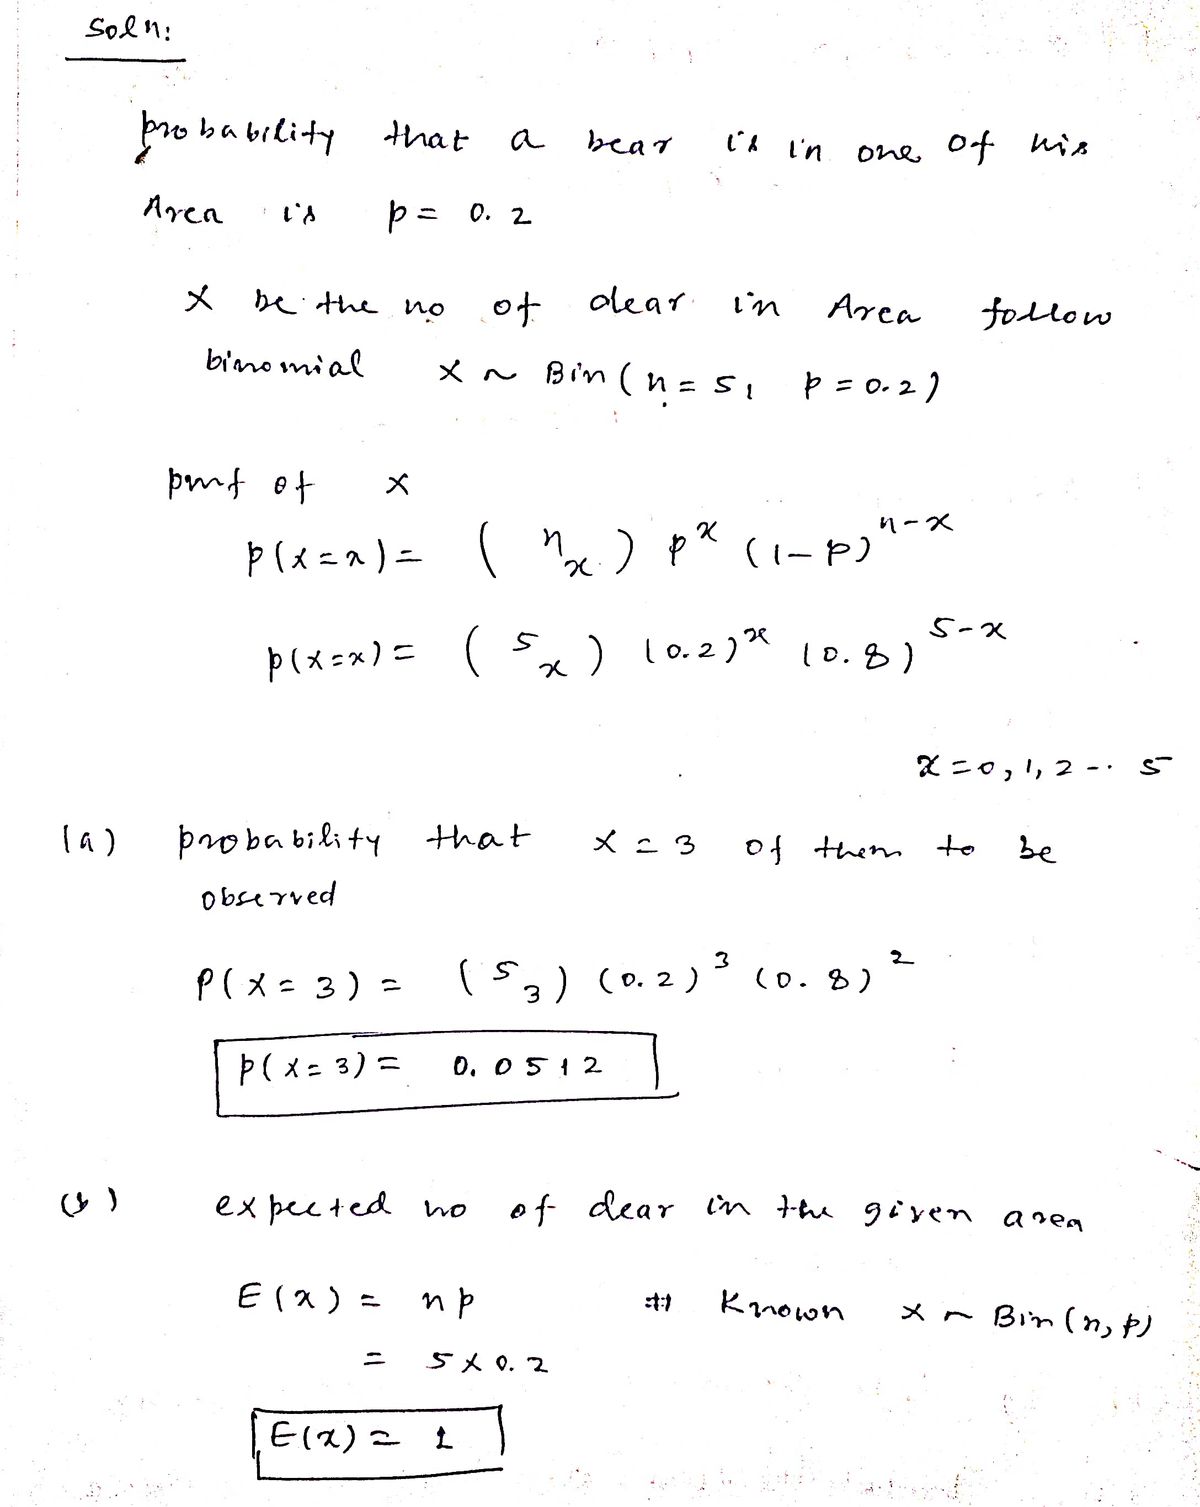 Soln:
probability that a bear is in one of his
Area is p = 0.2
X be the no of dear in Area follow
binomial X ~ Bin (n = 5, p = 0.2)
pmf of X
p(X=x) = (n x) p^x (1-p)^n-x
p(X=x) = (5 x) (0.2)^x (0.8)^5-x
x = 0, 1, 2 -.. 5
(a) probability that X = 3 of them to be
observed
P(X = 3) = (5 3) (0.2)^3 (0.8)^2
p(X = 3) = 0.0512
(b) expected no of dear in the given area
E(x) = np # Known X ~ Bin (n, p)
= 5 x 0.2
E(x) = 1